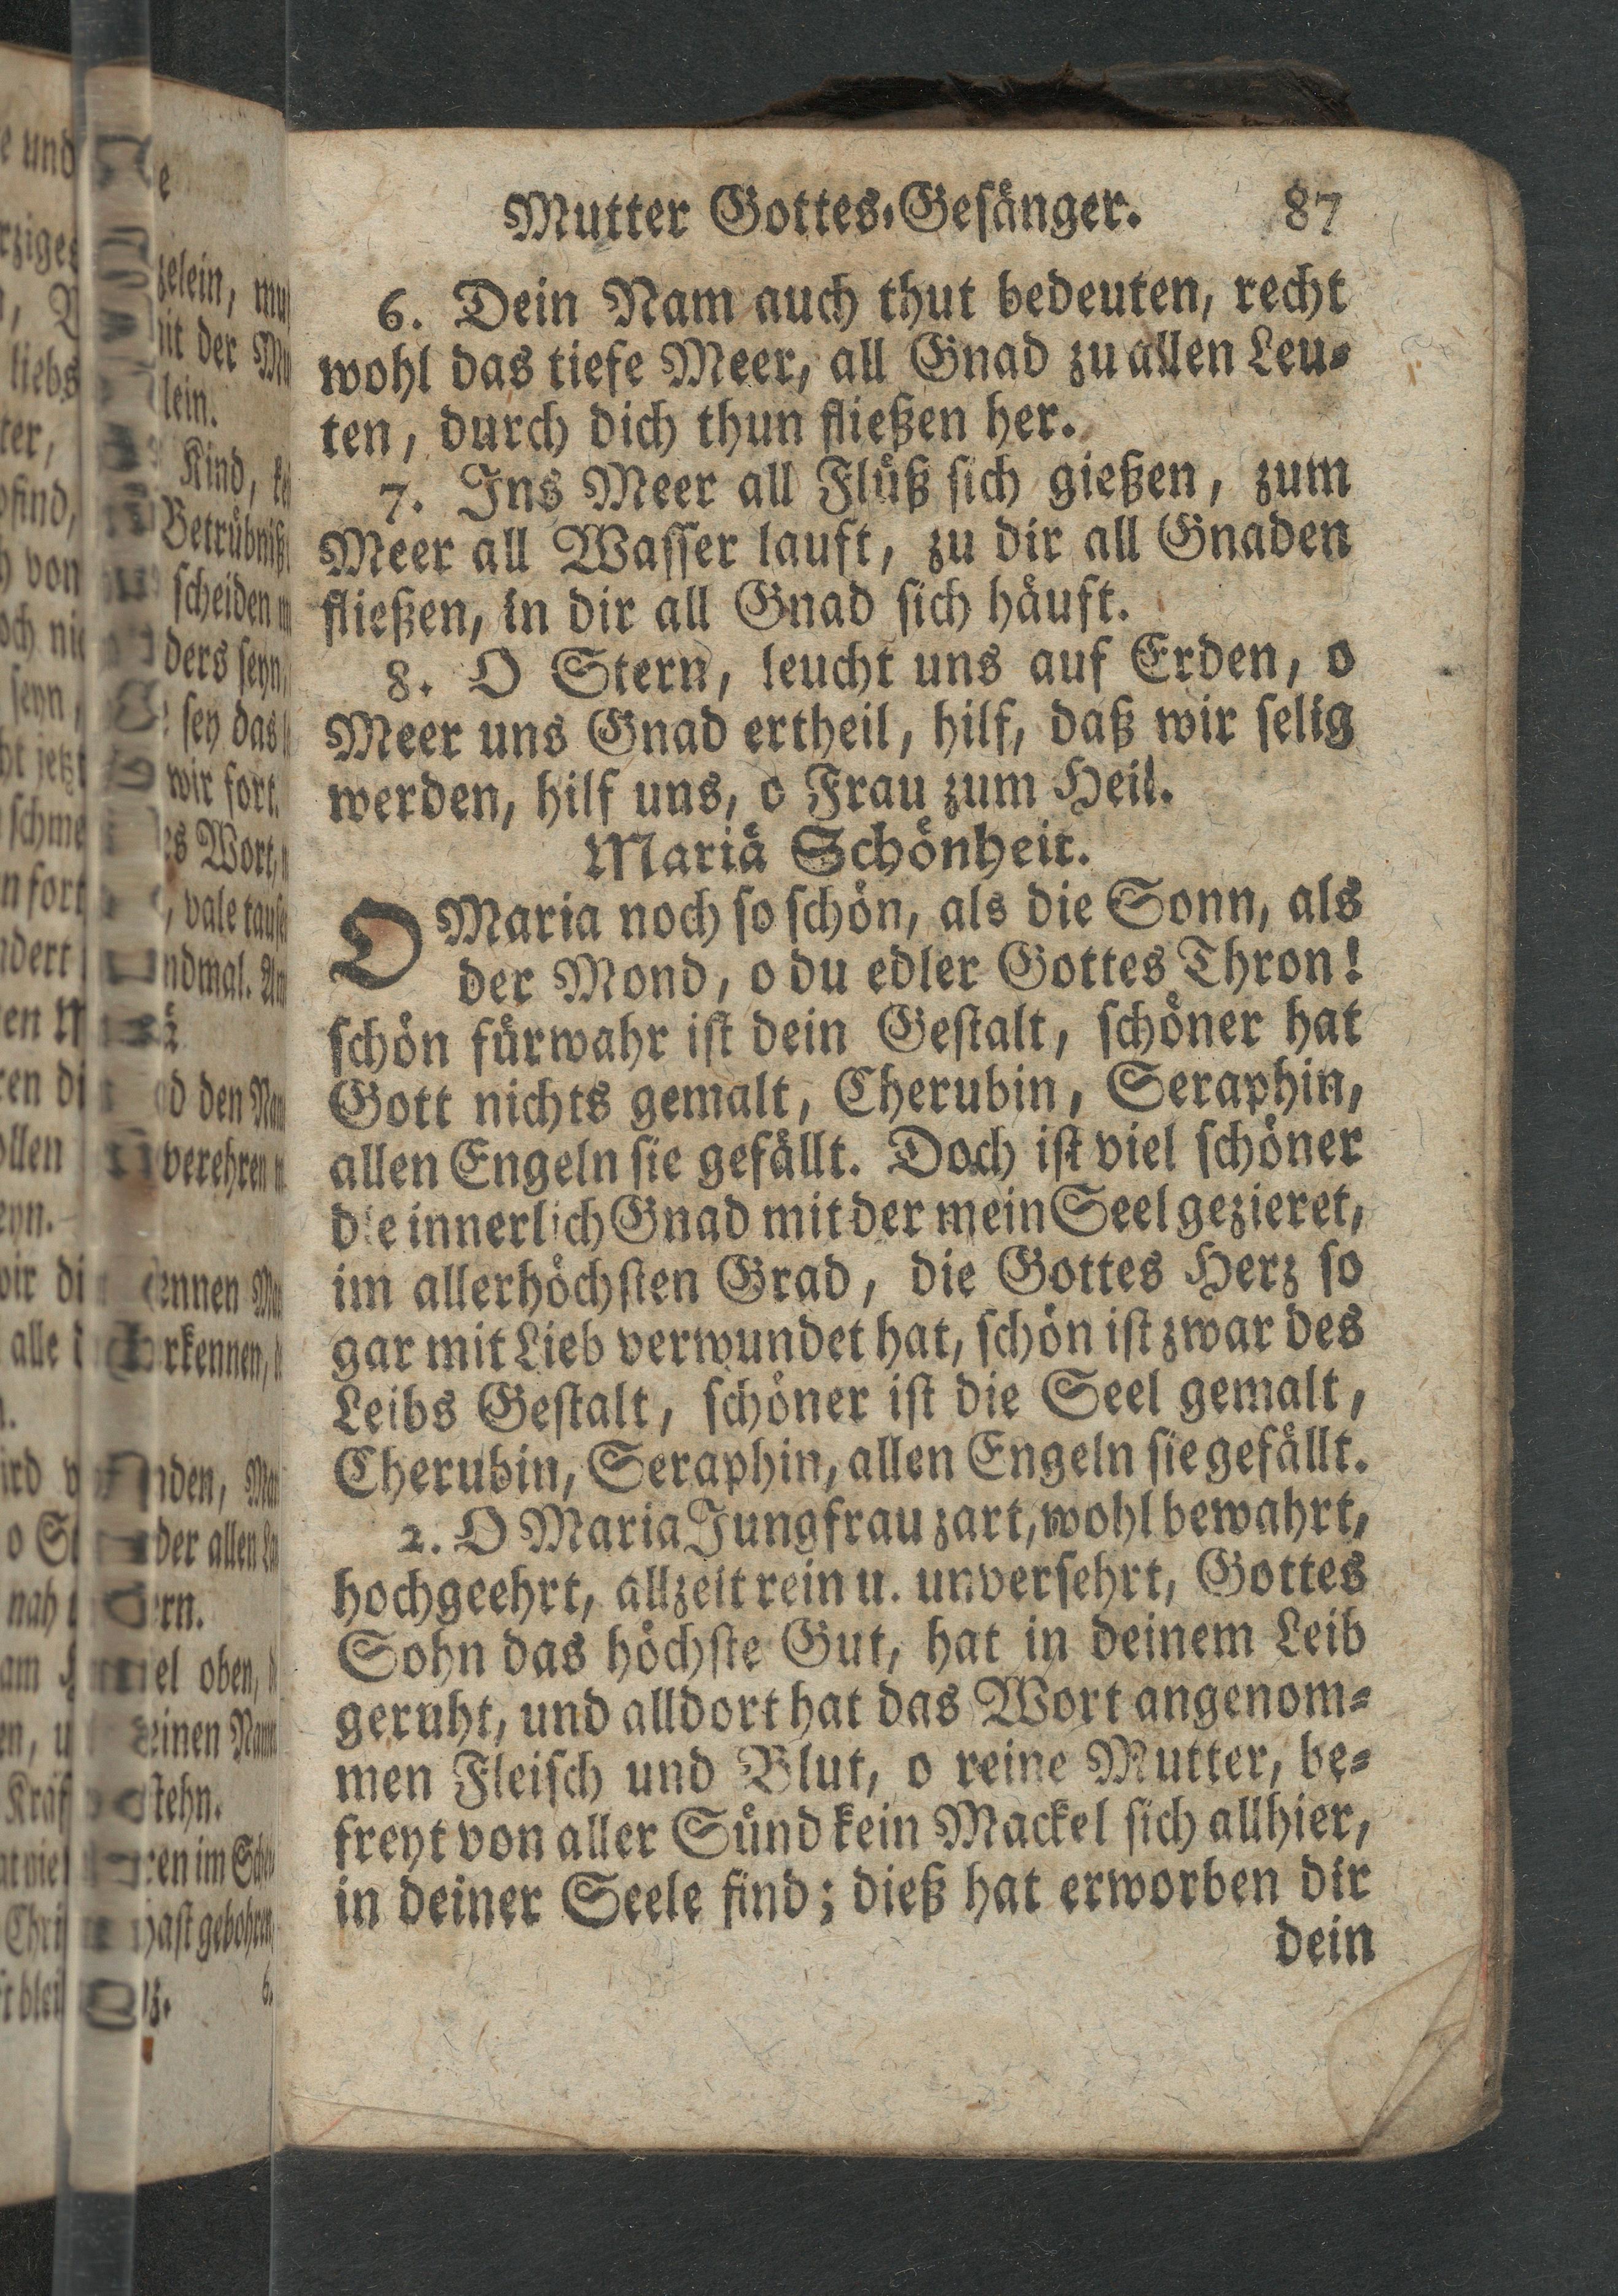 Mutter Gottes-Gesänger. 87
6. Dein Nam auch thut bedeuten, recht
wohl das tiefe Meer, all Gnad zu allen Leu-
ten, durch dich thun fließen her.
7. Ins Meer all Flüß sich gießen, zum
Meer all Wasser lauft, zu dir all Gnaden
fließen, in dir all Gnad sich häuft.
8. O Stern, leucht uns auf Erden, o
Meer uns Gnad ertheil, hilf, daß wir selig
werden, hilf uns, o Frau zum Heil.
Mariä Schönheit.
O Maria noch so schön, als die Sonn, als
der Mond, o du edler Gottes Thron!
schön fürwahr ist dein Gestalt, schöner hat
Gott nichts gemalt, Cherubin, Seraphin,
allen Engeln sie gefällt. Doch ist viel schöner
die innerlich Gnad mit der mein Seel gezieret,
im allerhöchsten Grad, die Gottes Herz so
gar mit Lieb verwundet hat, schön ist zwar des
Leibs Gestalt, schöner ist die Seel gemalt,
Cherubin, Seraphin, allen Engeln sie gefällt.
2. O Maria Jungfrau zart, wohl bewahrt,
hochgeehrt, allzeit rein u. unversehrt, Gottes
Sohn das höchste Gut, hat in deinem Leib
geruht, und alldort hat das Wort angenom-
men Fleisch und Blut, o reine Mutter, be-
freyt von aller Sünd kein Mackel sich allhier,
in deiner Seele find; dieß hat erworben dir
dein